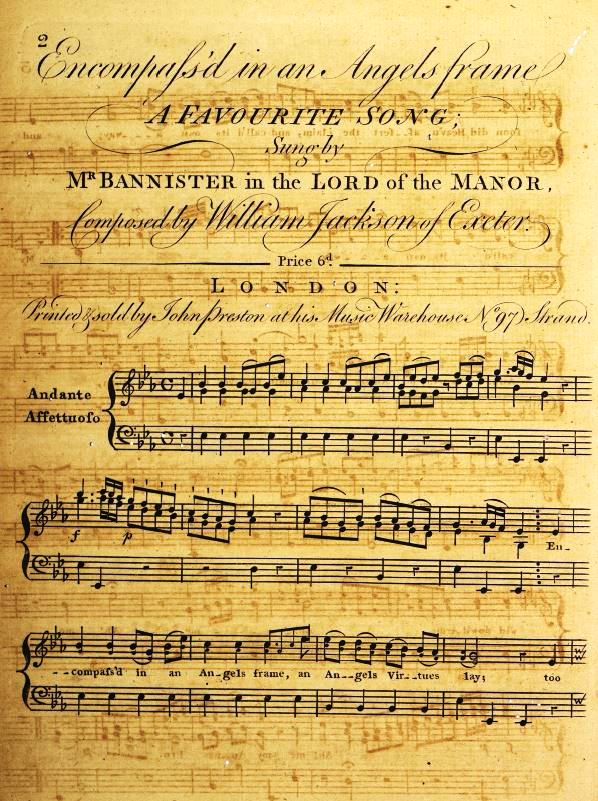 2
Encompaſs'd in an Angels frame
A FAVOURITE SONG;
Sung by
MR BANNISTER in the LORD of the MANOR,
Composed by William Jackson of Exeter.
Price 6d.
LONDON:
Printed & sold by John Preston at his Music Warehouse No 97 Strand.
Andante
Affettuoſo
f p
En-
--compaſs'd in an An-gels frame, an An--gels Vir--tues lay; too